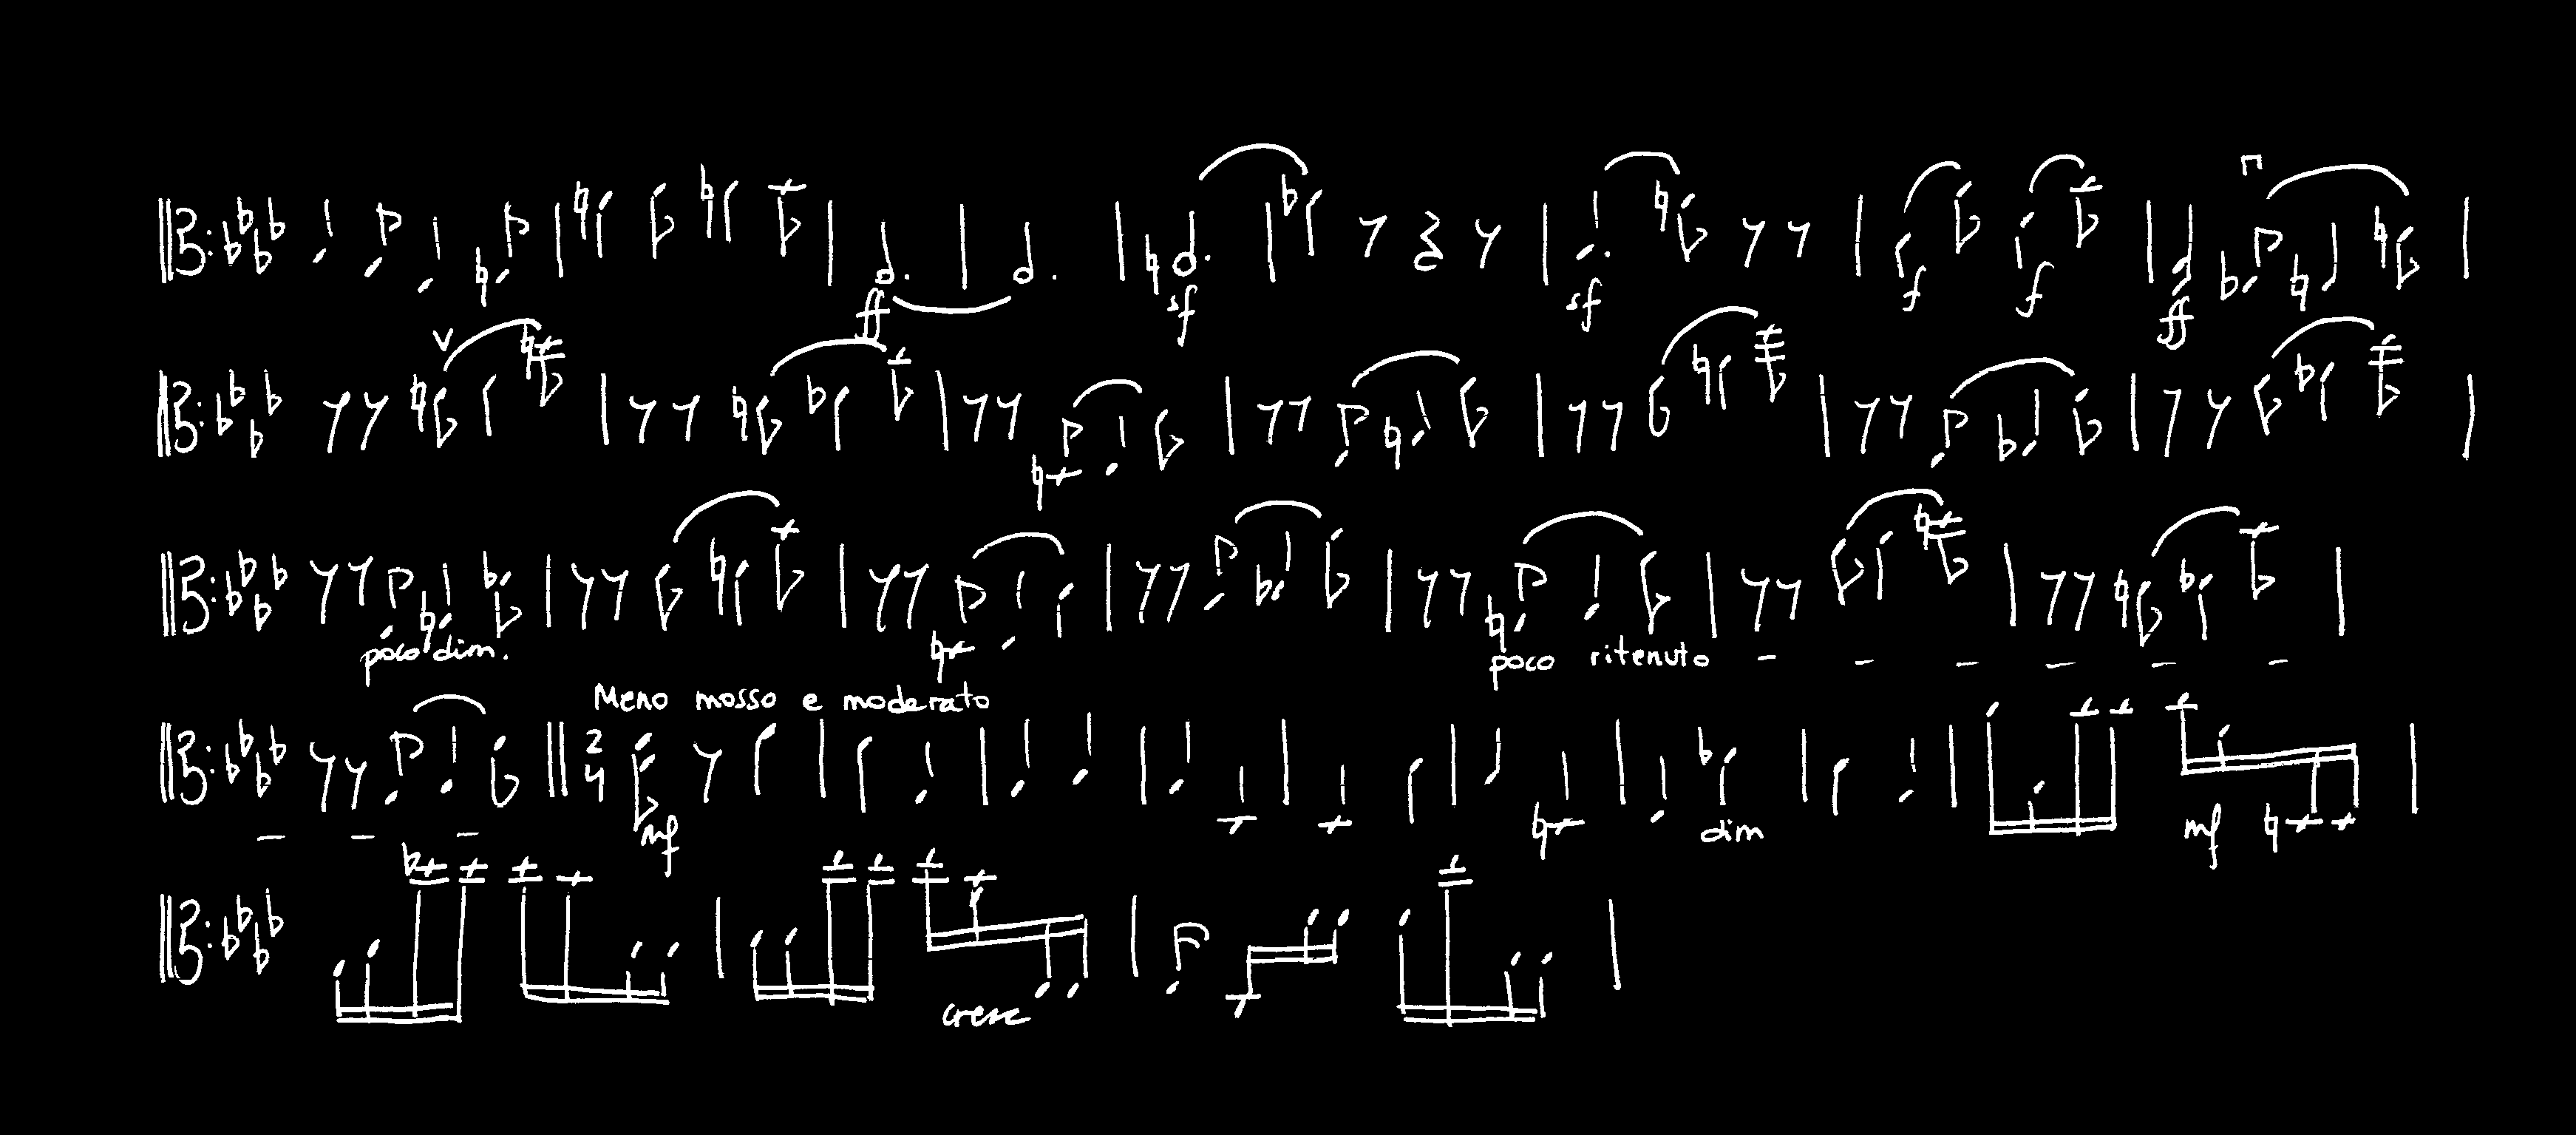 ff sf sf f f ff
poco dim. poco ritenuto
Meno mosso e moderato
2
4
mf dim mf
cresc